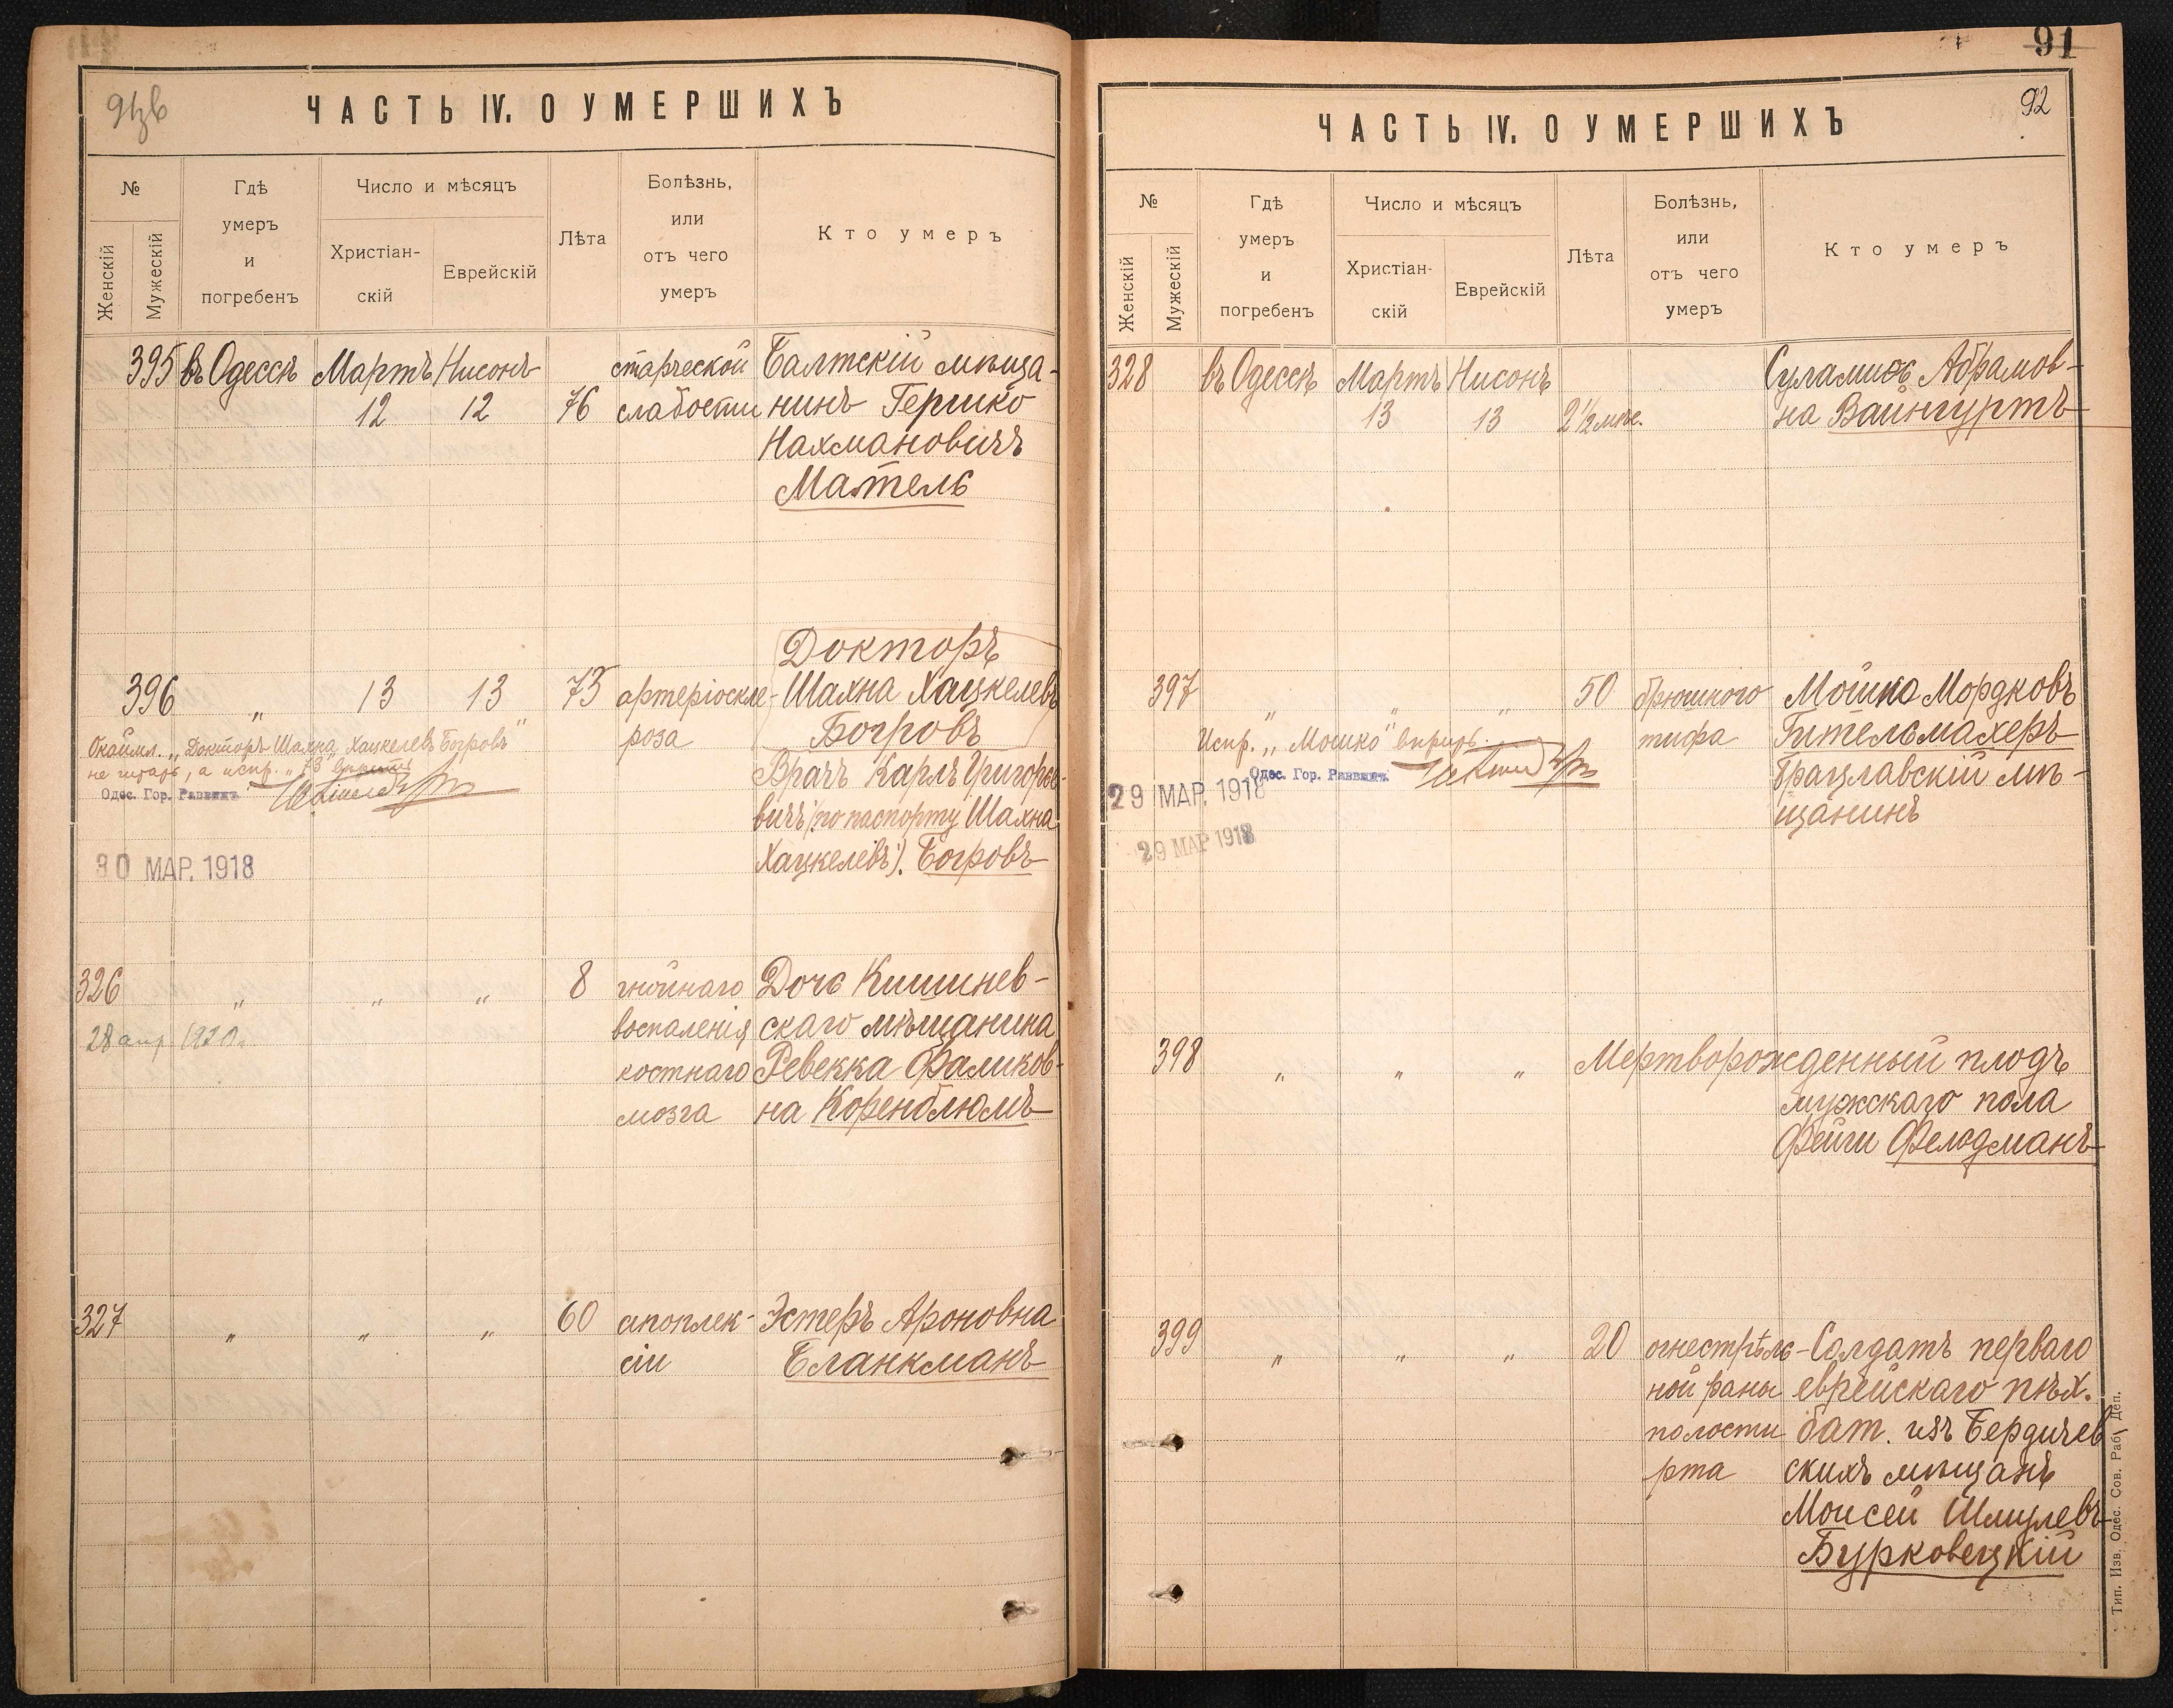 ЧАСТЬ IV. О УМЕРШИХЪ
№
Женскій
Мужескій
Гдѣ
умеръ
и
погребенъ
Число и мѣсяцъ
Христіан-
скій
Еврейскій
Лѣта
Болѣзнь,
или
отъ чего
умеръ
Кто умеръ
395 въ Одессѣ Мартъ Нисонъ старческой Балтскій мѣща-
12 12 76 слабости нинъ Гершко
Нахмановичъ
Мательс
Докторъ
396 „ 13 13 73 артеріоскле- Шахна Хацкелевъ
роза Богровъ
Окаймл. „Докторъ Шахна Хацкелевъ Богровъ"
не читать, а испр. „73" вѣрить
Одес. Гор. Раввинъ
Врачъ Карлъ Григорье-
вичъ (по паспорту Шахна
Хацкелевъ). Богровъ
30 МАР. 1918
326 „ „ „ 8 гнойнаго Дочь Кишинев-
воспаленія скаго мѣщанина
28 апр 1920г.
костнаго Ревекка Фаликов-
мозга на Коренблюмъ
327 „ „ „ 60 апоплек- Эстеръ Ароновна
сіи Бланкманъ
91
92
ЧАСТЬ IV. О УМЕРШИХЪ
№
Женскій
Мужескій
Гдѣ
умеръ
и
погребенъ
Число и мѣсяцъ
Христіан-
скій
Еврейскій
Лѣта
Болѣзнь,
или
отъ чего
умеръ
Кто умеръ
328 въ Одессѣ Мартъ Нисонъ Суламись Абрамов-
13 13 2½ мѣс. на Вайнгуртъ
397 „ „ „ 50 брюшного Мошко Мордковъ
тифа Гительмахеръ
Испр. „Мошко" вѣрить.
Одес. Гор. Раввинъ
Брацлавскій мѣ-
щанинъ
29 МАР. 1918
29 МАР 1918
398 „ „ „ Мертворожденный плодъ
мужскаго пола
Фейги Фельдманъ
399 „ „ „ 20 огнестрѣль- Солдатъ перваго
ной раны еврейскаго пѣх.
полости бат. изъ Бердичев-
рта скихъ мѣщанъ
Моисей Шмулевъ
Бурковецкій
Тип. Изв. Одес. Сов. Раб. Деп.